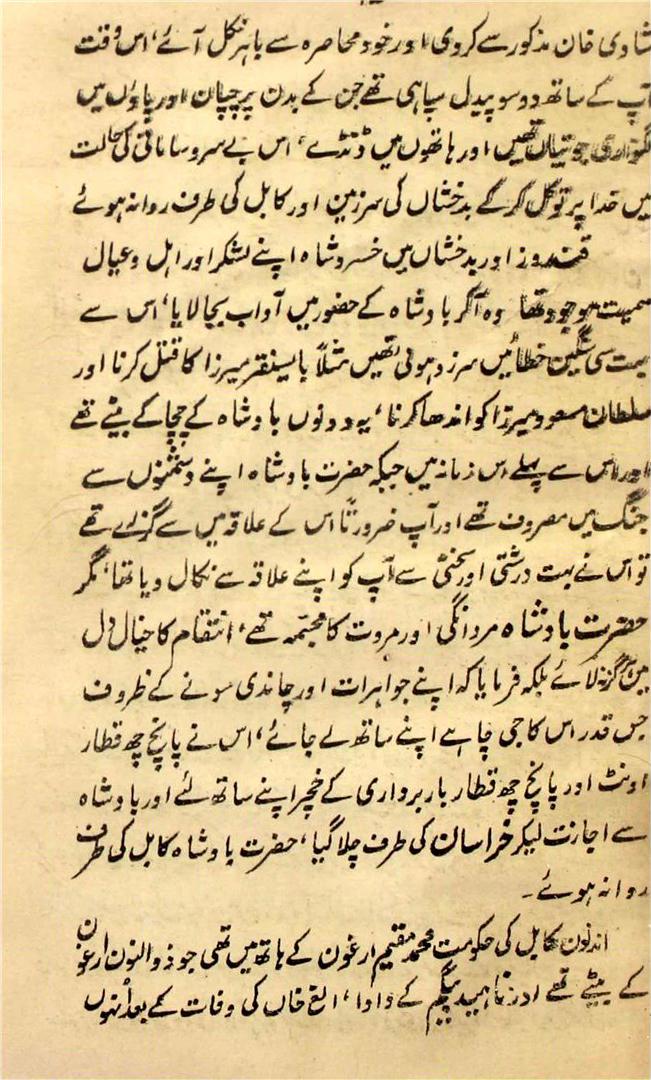 شادی خان مذکور سے کر دی اور خود محاصرہ سے باہر نکل آئے، اس وقت
آپ کے ساتھ دو سو پیدل سپاہی تھے جن کے بدن پر چپان اور پاؤں میں
گنواری جوتیاں تھیں اور ہاتھوں میں ڈنڈے، اس بے سر و سامانی کی حالت
میں خدا پر توکل کر کے بدخشاں کی سرزمین اور کابل کی طرف روانہ ہوئے
قندوز اور بدخشاں میں خسرو شاہ اپنے لشکر اور اہل و عیال
سمیت موجود تھا وہ آکر بادشاہ کے حضور میں آداب بجا لایا، اس سے
بہت سی سنگین خطائیں سرزد ہوئی تھیں مثلاً بایسنقر میرزا کا قتل کرنا اور
سلطان مسعود میرزا کو اندھا کرنا، یہ دونوں بادشاہ کے چچا کے بیٹے تھے
اور اس سے پہلے اس زمانہ میں جبکہ حضرت بادشاہ اپنے دشمنوں سے
جنگ میں مصروف تھے اور آپ ضرورتاً اس کے علاقہ میں سے گزرے تھے
تو اس نے بہت درشتی اور سختی سے آپ کو اپنے علاقہ سے نکال دیا تھا، مگر
حضرت بادشاہ مردانگی اور مروت کا مجسمہ تھے، انتقام کا خیال دل
میں ہرگز نہ لائے بلکہ فرمایا کہ اپنے جواہرات اور چاندی سونے کے ظروف
جس قدر اس کا جی چاہے اپنے ساتھ لے جائے، اس نے پانچ چھ قطار
اونٹ اور پانچ چھ قطار باربرداری کے خچر اپنے ساتھ لئے اور بادشاہ
سے اجازت لیکر خراسان کی طرف چلا گیا، حضرت بادشاہ کابل کی طرف
روانہ ہوئے۔
اندنوں کابل کی حکومت محمد مقیم ارغون کے ہاتھ میں تھی جو ذوالنون ارغون
کے بیٹے تھے اور ناہید بیگم کے دادا، الغ خاں کی وفات کے بعد اُنہوں